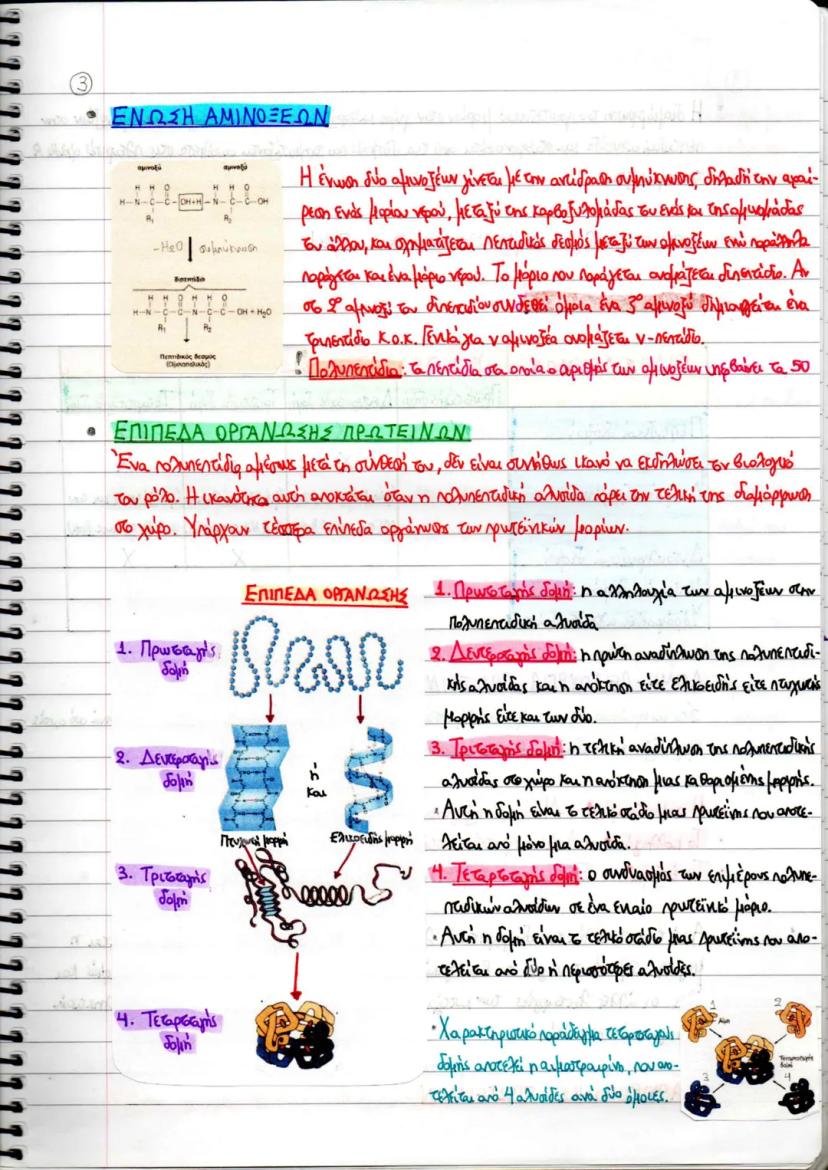 3
• ΕΝΩΣΗ ΑΜΙΝΟΞΕΩΝ
αμινοξύ αμινοξύ
H H O H H O
H-N-C-C-OH+H-N-C-C-OH
R₁ R₂
-H₂O συμπύκνωση
διπεπτίδιο
H H O H H O
H-N-C-C-N-C-C-OH + H₂O
R₁ R₂
Πεπτιδικός δεσμός
(Ομοιοπολικός)
Η ένωση δύο αμινοξέων γίνεται με την αντίδραση συμπύκνωσης, δηλαδή την αφαί-
ρεση ενός μορίου νερού, μεταξύ της καρβοξυλομάδας του ενός και της αμινομάδας
του άλλου, και σχηματίζεται πεπτιδικός δεσμός μεταξύ των αμινοξέων ενώ παράλληλα
παράγεται και ένα μόριο νερού. Το μόριο που παράγεται ονομάζεται διπεπτίδιο. Αν
στο 2º αμινοξύ του διπεπτιδίου συνδεθεί όμοια ένα 3º αμινοξύ δημιουργείται ένα
τριπεπτίδιο κ.ο.κ. Γενικά για ν αμινοξέα ονομάζεται ν-πεπτίδιο.
! Πολυπεπτίδια: τα πεπτίδια στα οποία ο αριθμός των αμινοξέων υπερβαίνει τα 50
• ΕΠΙΠΕΔΑ ΟΡΓΑΝΩΣΗΣ ΠΡΩΤΕΙΝΩΝ
Ένα πολυπεπτίδιο αμέσως μετά τη σύνθεσή του, δεν είναι συνήθως ικανό να εκδηλώσει τον βιολογικό
του ρόλο. Η ικανότητα αυτή αποκτάται όταν η πολυπεπτιδική αλυσίδα πάρει την τελική της διαμόρφωση
στο χώρο. Υπάρχουν τέσσερα επίπεδα οργάνωσης των πρωτεϊνικών μορίων.
ΕΠΙΠΕΔΑ ΟΡΓΑΝΩΣΗΣ
1. Πρωτοταγής
δομή
2. Δευτεροταγής
δομή
ή
και
Πτυχωτή μορφή Ελικοειδής μορφή
3. Τριτοταγής
δομή
4. Τεταρτοταγής
δομή
1. Πρωτοταγής δομή: η αλληλουχία των αμινοξέων στην
πολυπεπτιδική αλυσίδα
2. Δευτεροταγής δομή: η πρώτη αναδίπλωση της πολυπεπτιδι-
κής αλυσίδας και η απόκτηση είτε ελικοειδής είτε πτυχωτής
μορφής είτε και των δύο.
3. Τριτοταγής δομή: η τελική αναδίπλωση της πολυπεπτιδικής
αλυσίδας στο χώρο και η απόκτηση μιας καθορισμένης μορφής.
• Αυτή η δομή είναι το τελικό στάδιο μιας πρωτεΐνης που αποτε-
λείται από μόνο μια αλυσίδα.
4. Τεταρτοταγής δομή: ο συνδυασμός των επιμέρους πολυπε-
πτιδικών αλυσίδων σε ένα ενιαίο πρωτεϊνικό μόριο.
• Αυτή η δομή είναι το τελικό στάδιο μιας πρωτεΐνης που απο-
τελείται από δύο ή περισσότερες αλυσίδες.
• Χαρακτηριστικό παράδειγμα τεταρτοταγούς
δομής αποτελεί η αιμοσφαιρίνη, που απο-
τελείται από 4 αλυσίδες ανά δύο όμοιες.
1 2
Αίμη
Τεταρτοταγής
δομή
3 4